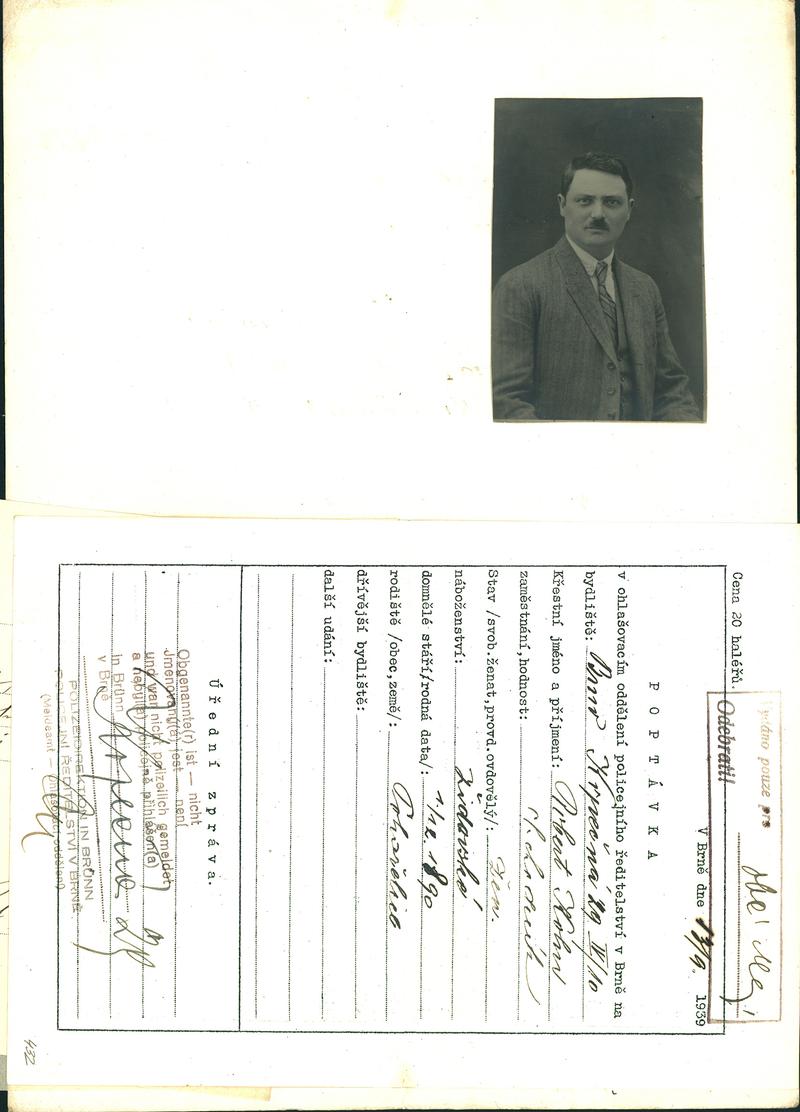 Cena 20 haléřů.
Vydáno pouze pro
Odebratil
V Brně dne 13/9. 1939
POPTÁVKA
v ohlašovacím oddělení policejního ředitelství v Brně na
bydliště: Brno Křenová 29 IV/10
Křestní jméno a příjmení: Robert Kohn
zaměstnání,hodnost: obchodník
Stav /svob.ženat,provd.ovdovělý/: žen.
náboženství: židovské
domnělé stáří/rodná data/: 1/12. 1890
rodiště /obec,země/: Pohořelice
dřívější bydliště:
další udání:
Úřední zpráva.
Obgenannte(r) ist — nicht
Jmenovaný(á) jest — není
und war nicht polizeilich gemeldet
a nebyl(a) policejně přihlášen(a)
in Brünn
v Brně
POLIZEIDIREKTION IN BRÜNN
POLICEJNÍ ŘEDITELSTVÍ V BRNĚ
(Meldeamt — Ohlašovací oddělení)
432